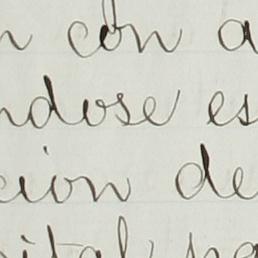 n con a
ndose es
cion de
ital pa